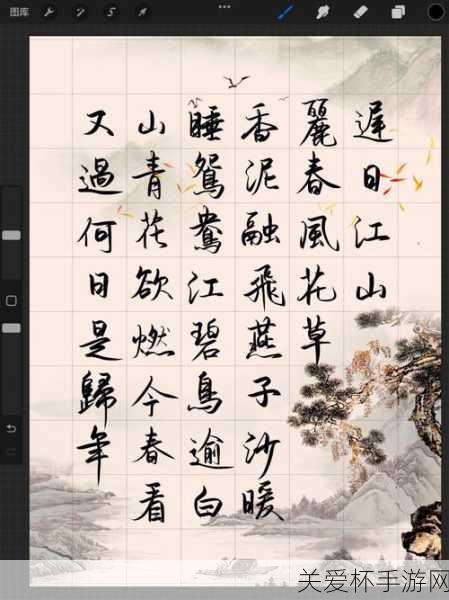 图库
遲日江山
麗春風花草
香泥融飛燕子沙暖
睡鴛鴦江碧鳥逾白
山青花欲燃今春看
又過何日是歸年
关爱杯手游网